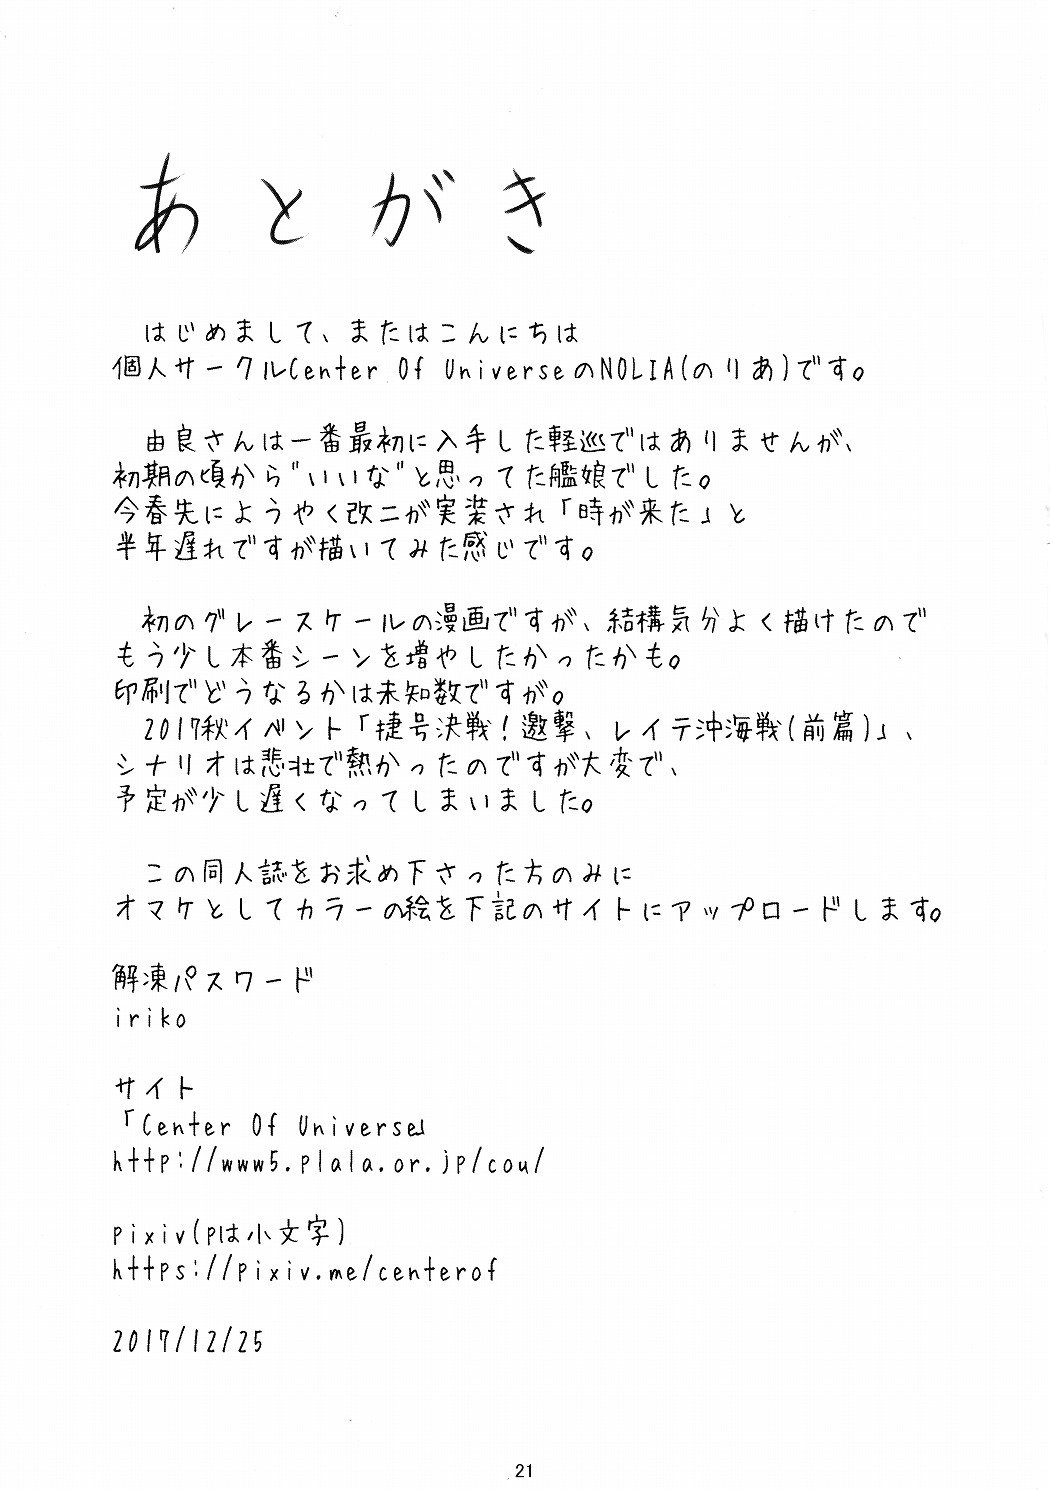 あとがき
はじめまして、またはこんにちは
個人サークルCenter Of UniverseのNOLIA(のりあ)です。
由良さんは一番最初に入手した軽巡ではありませんが、
初期の頃から"いいな"と思ってた艦娘でした。
今春先にようやく改二が実装され「時が来た」と
半年遅れですが描いてみた感じです。
初のグレースケールの漫画ですが、結構気分よく描けたので
もう少し本番シーンを増やしたかったかも。
印刷でどうなるかは未知数ですが。
2017秋イベント「捷号決戦!邀撃、レイテ沖海戦(前篇)」、
シナリオは悲壮で熱かったのですが大変で、
予定が少し遅くなってしまいました。
この同人誌をお求め下さった方のみに
オマケとしてカラーの絵を下記のサイトにアップロードします。
解凍パスワード
iriko
サイト
「Center Of Universe」
http://www5.plala.or.jp/cou/
pixiv(pは小文字)
https://pixiv.me/centerof
2017/12/25
21